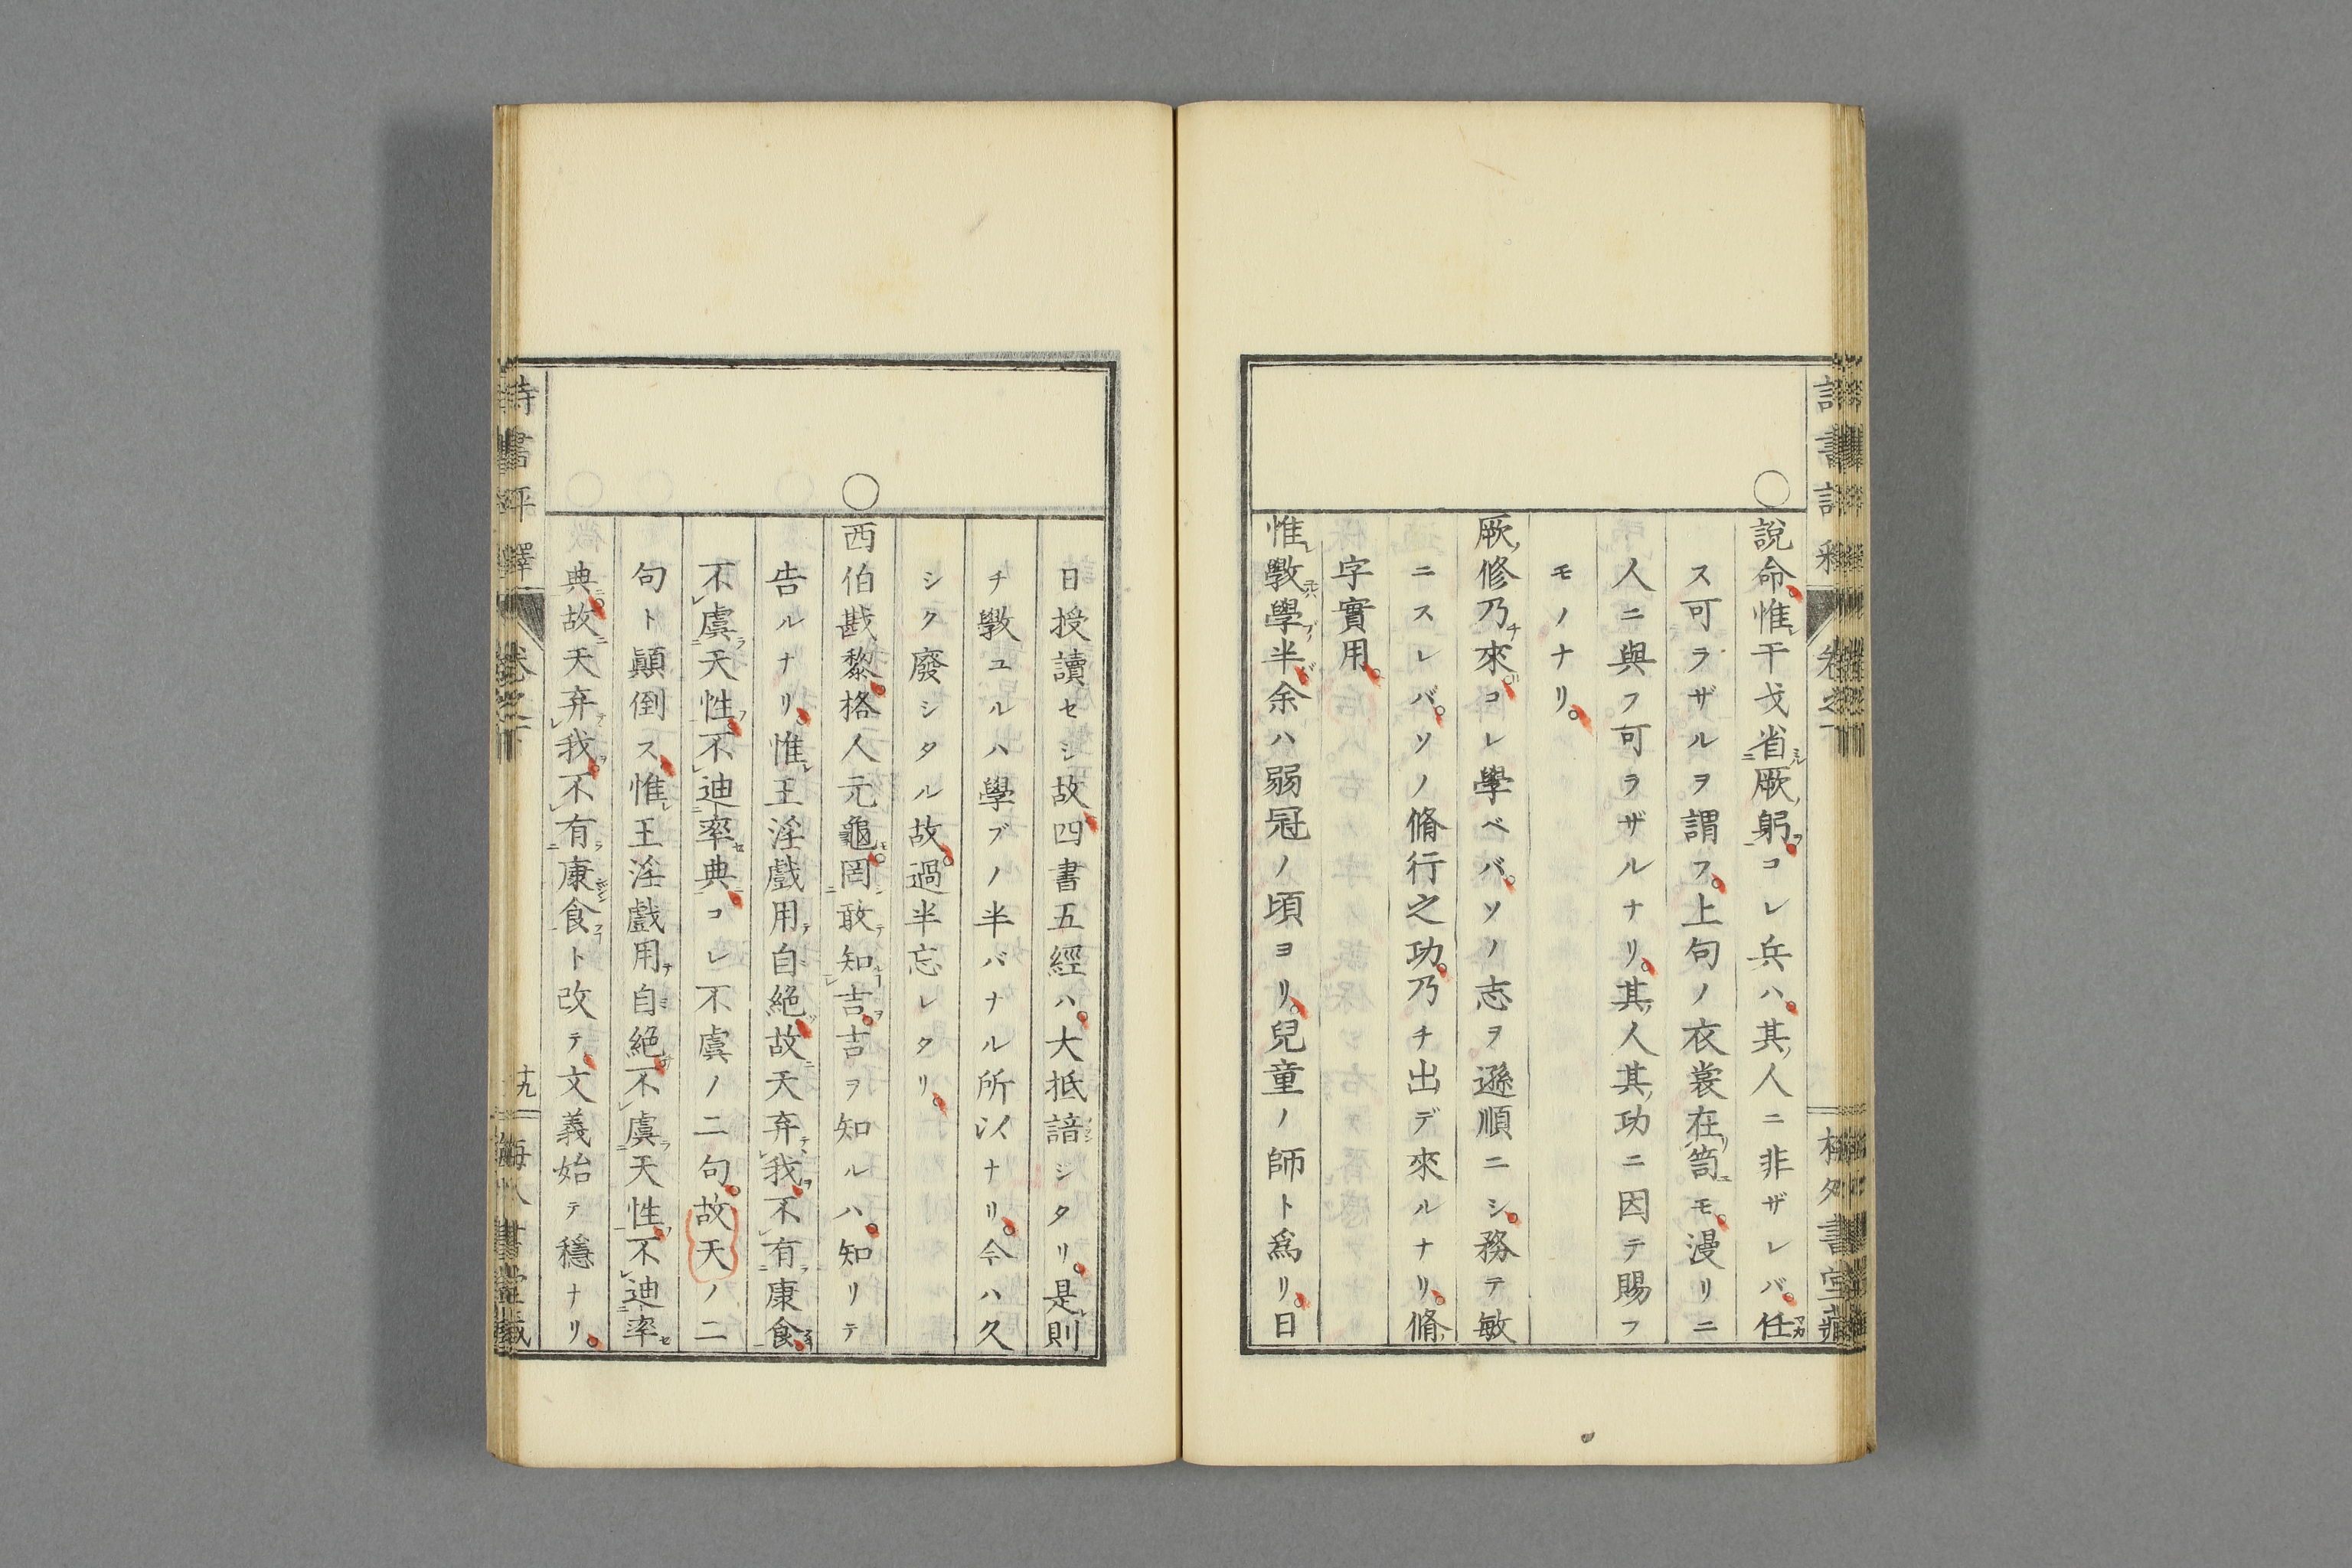 説命。惟干戈省厥躬。コレ兵ハ。其人ニ非ザレバ。任
ス可ラザルヲ謂フ。上句ノ衣裳在笥モ。漫リニ
人ニ與フ可ラザルナリ。其人其功ニ因テ賜フ
モノナリ。
厥修乃來。コレ學ベバ。ソノ志ヲ遜順ニシ。務テ敏
ニスレバ。ソノ脩行之功。乃チ出デ來ルナリ。脩
字實用。
惟斆學半。余ハ弱冠ノ頃ヨリ。兒童ノ師ト爲リ。日
日授讀セシ故四書五經ハ。大抵諳シタリ。是則
チ斆ユルハ學ブノ半バナル所以ナリ。今ハ久
シク廢シタル故。過半忘レタリ。
西伯戡黎。格人元龜。罔敢知吉。吉ヲ知ルハ。知リテ
告ルナリ。惟王淫戲用自絕。故天弃我。不有康食。
不虞天性。不迪率典。コレ不虞ノ二句。故天ノ二
句ト顚倒ス惟王淫戲用自絕。不虞天性。不迪率
典。故天弃我。不有康食ト改テ文義始テ穩ナリ。
詩書評釋
卷之下
十九